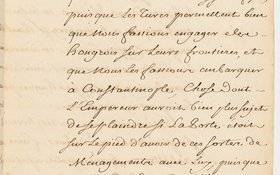 puisque les Turcs permettent bien
que Nous fassions engager des
hongrois sur Leurs frontieres et
que Nous les fassions embarquer
a Constantinople, Chose dont
L'Empereur auroit bien plus sujet
de se plaindre si La Porte, etoit
sur Le pied d'avoir de ces sortes, de
Menagements avec Luy, puisque